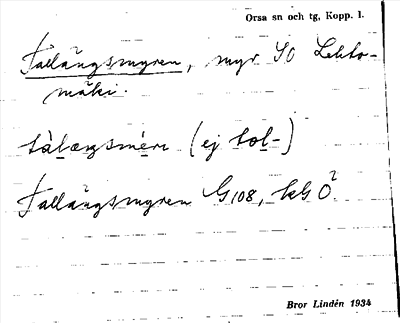 Orsa sn och tg, Kopp. l.
Tallängsmyren, myr SO Lehto-
mäki.
tàlængsmėrn (ej tol-)
Tallängsmyren G 108, kG Ö²
Bror Lindén 1934